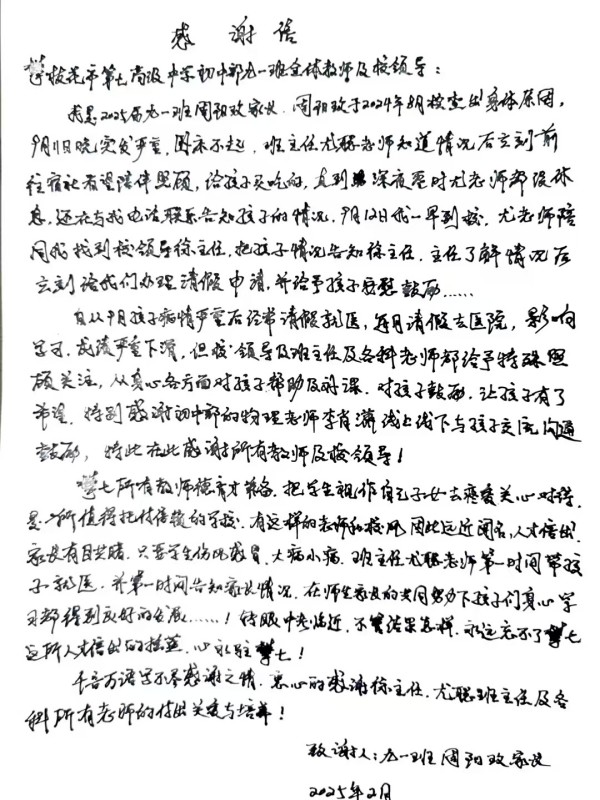 感谢信
攀枝花市第七高级中学初中部九一班全体教师及校领导：
我是2025届九一班周阳玫家长。周阳玫于2024年8月检查出身体原因，
9月11日晚突发严重，困床不起，班主任尤聪老师知道情况后立刻前
往宿社看望陪伴照顾，给孩子买吃的，直到深夜零时尤老师都没休
息，还在与我电话联系告知孩子的情况，9月12日我一早到校，尤老师陪
同我找到校领导徐主任，把孩子情况告知徐主任，主任了解情况后
立刻给我们办理请假申请，并给予孩子安慰鼓励……
自从9月孩子病情严重后经常请假就医，每月请假去医院，影响
学习，成绩严重下滑，但校领导及班主任及各科老师都给予特殊照
顾关注，从身心各方面对孩子帮助及补课，对孩子鼓励，让孩子有了
希望，特别感谢初中部的物理老师李肖潇线上线下与孩子交流沟通
鼓励，特此在此感谢所有教师及校领导！
攀七所有教师德育才兼备，把学生视作自己子女去疼爱关心对待，
是一所值得托付信赖的学校，有这样的老师和校风因此远近闻名，人才倍出，
家长有目共睹，只要学生伤风感冒，大病小病，班主任尤聪老师第一时间带孩
子就医，并第一时间告知家长情况，在师生家长的共同努力下孩子们身心学
习都得到良好的发展……！转眼中考临近，不管结果怎样，永远忘不了攀七
这所人才倍出的摇蓝，心永驻攀七！
千言万语写不尽感谢之情，衷心的感谢徐主任，尤聪班主任及各
科所有老师的付出关爱与培养！
致谢人：九一班周阳玫家长
2025年2月